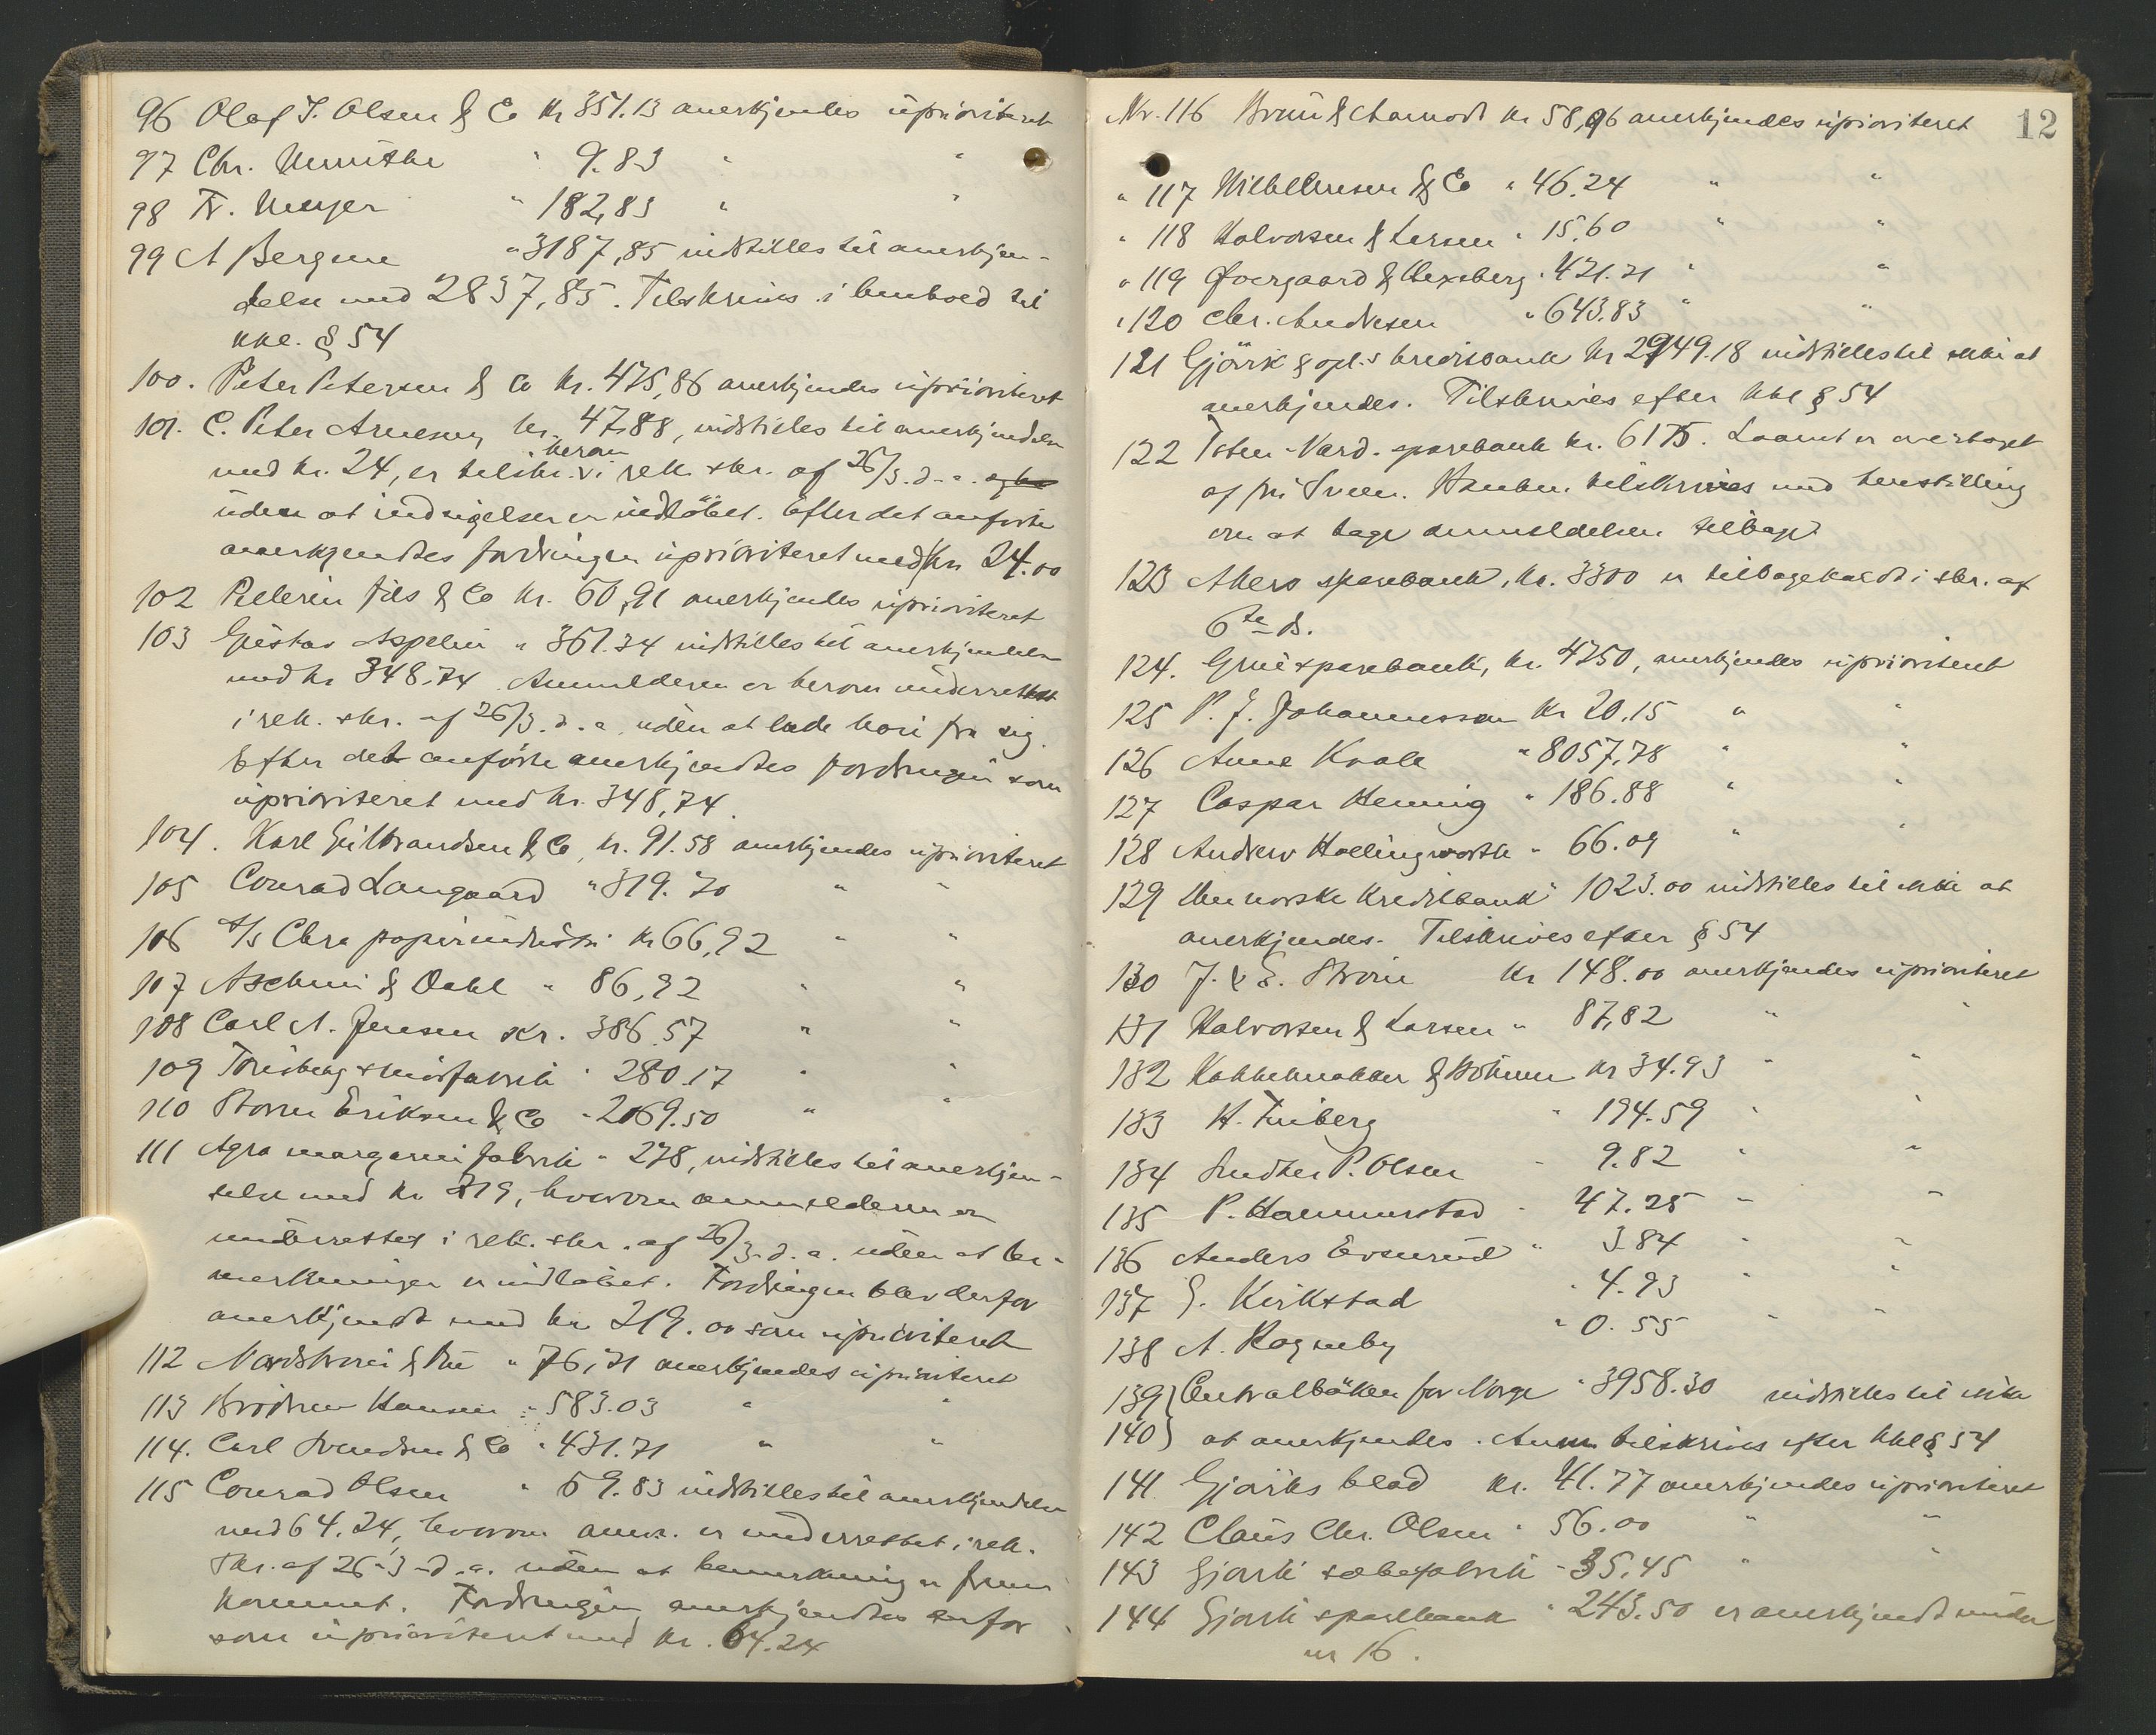 96 Olaf T. Olsen & Co kr 351.13 anerkjendes uprioriteret
97 Chr. " 9.83 " "
98 Fr. Meyer " 182,83 " "
99 A Bergene " 3187,85 indstilles til anerkjen-
delse med 2837,85. Tilskrives i henhold til
kkl. § 54
100. Peter Petersen & Co kr. 475,86 anerkjendes uprioriteret
101. C. Peter Arnesen, kr. 47.88, indstilles til anerkjendelse
med kr. 24, er tilskr. herom i rek. skr. af 26/3. d. a.
uden at indsigelser er indløbet. Efter det anførte
anerkjendtes fordringen uprioriteret med kr 24.00
102 Pellerin fils & Co kr. 60,91 anerkjendes uprioriteret
103 Gustav Aspelin " 361.34 indstilles til anerkjendelse
med kr 348.74. Anmelderen er herom underrettet
i rek. skr. af 26/3. d. a. uden at lade høre fra sig.
Efter det anførte anerkjendtes fordringen som
uprioriteret med kr. 348,74.
104. Karl Gulbrandsen & Co, kr. 91.58 anerkjendes uprioriteret
105 Conrad Langaard " 319.70 " "
106 A/S Chra papirindustri kr 66,92 " "
107 Aschim & Dahl " 86,92 " "
108 Carl A. Jensen kr. 386.57 " "
109 smørfabrik " 280.17 " "
110 Storm Eriksen & Co " 2069.50 " "
111 Agra margarinfabrik " 278, indstilles til anerkjen-
delse med kr 219, hvorom anmelderen er
underrettet i rek. skr. af 26/3. d. a. uden at be-
merkninger er indløbet. Fordringen blev derfor
anerkjendt med kr 219.00 som uprioriteret
112 Nordstrøm & Due " 76,71 anerkjendes uprioriteret
113 Brødrene Hansen " 583.03 " "
114. Carl Svendsen & Co " 431.71 " "
115 Conrad Olsen " 69.83 indstilles til anerkjendelse
med 64.24, hvorom anm. er underrettet i rek.
skr. af 26-3-d. a. uden at bemerkning er frem
kommet. Fordringen anerkjendtes derfor
som uprioriteret med kr. 64.24
12
Nr. 116 Bruun & Aamodt kr 58,96 anerkjendes uprioriteret
" 117 Wilhelmsen & Co " 46.24 " "
" 118 Halvorsen & Larsen " 15.60 " "
" 119 Øvergaard & Hexeberg " 421.21 " "
" 120 Chr. Andresen " 643.83 " "
121 Gjøvik & opl.s kreditbank kr 2949.18 indstilles til ikke at
anerkjendes. Tilskrives efter kkl § 54
122 Vardal sparebank kr. 6175. Laanet er overtaget
af fru Sveen. Banken tilskrives med henstilling
om at tage anmeldelsen tilbage.
123 Akers sparebank, kr. 3300 er tilbagekaldt i skr. af
6te ds.
124. Grue sparebank, kr. 4250, anerkjendes uprioriteret
125 P. J. Johannessen kr 20.15 " "
126 Anne Kvale " 8057,78 " "
127 Caspar Hennig " 186.88 " "
128 Andrew Hollingworth " 66.09 " "
129 Den norske Kreditbank " 1023.00 indstilles til ikke at
anerkjendes. Tilskrives efter § 54
130 J. & E. Strøm kr 148.00 anerkjendes uprioriteret
131 Halvorsen & Larsen " 87,82 " "
132 & Böhme kr 34.93 " "
133 H. Friberg " 194.59 " "
134 P. Olsen " 9.82 " "
135 P. Hammerstad " 47.25 " "
136 Anders Evenrud " 3.84 " "
137 E. Kirkstad " 4.93 " "
138 A. Rogneby " 0.55 " "
139 } Centralbanken for Norge " 3958.30 indstilles til ikke
140 } at anerkjendes. Anm tilskrives efter kkl § 54
141 Gjøviks blad kr. 41.77 anerkjendes uprioriteret
142 Claus Chr. Olsen " 56.00 " "
143 Gjøvik sæbefabrik " 35.45 " "
144 Gjøvik sparebank " 243.50 er anerkjendt under
nr 16.